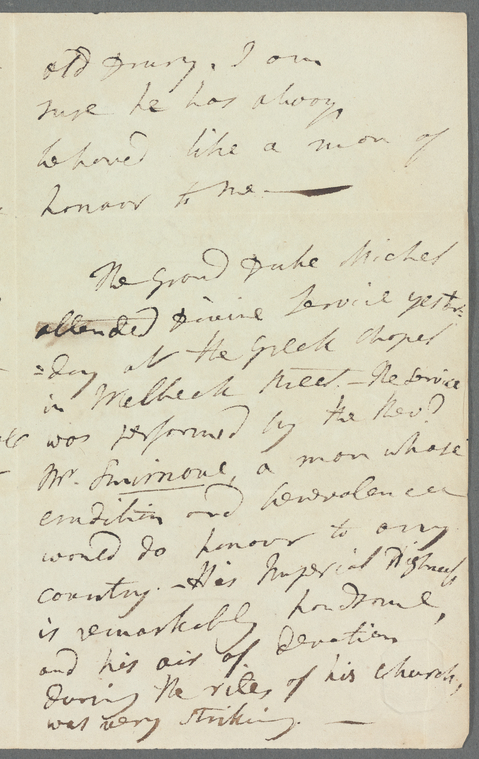 old Drury. I am
sure he has always
behaved like a man of
honour to me —
The Grand Duke Michel
attended Divine Service yester-
=day at the Greek Chapel
in Welbeck Street. - The Service
was performed by the Revd.
Mr. Smirnove, a man whose
erudition and benevolence
would do honour to any
country. - His Imperial Highness
is remarkably handsome,
and his air of devotion
during the rites of his Church,
was very striking. —